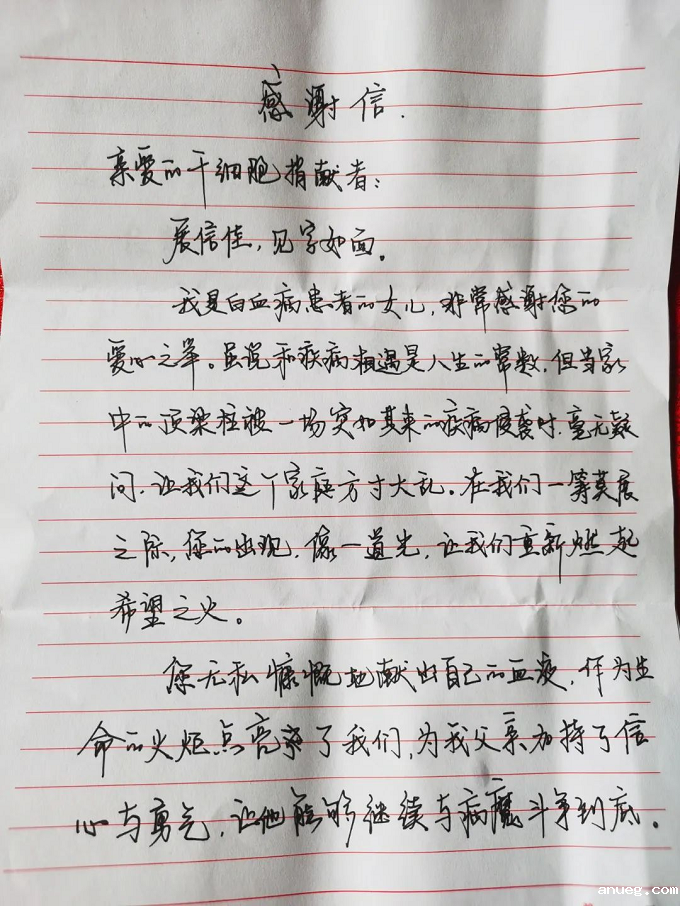 感谢信.
亲爱的干细胞捐献者:
展信佳,见字如面。
我是白血病患者的女儿,非常感谢您的
爱心之举。虽说和疾病相遇是人生的常数,但当家
中的顶梁柱被一场突如其来的疾病侵袭时,毫无疑
问,让我们这个家庭方寸大乱。在我们一筹莫展
之际,您的出现,像一道光,让我们重新燃起
希望之火。
您无私慷慨地献出自己的血液,作为生
命的火炬点亮了我们,为我父亲加持了信
心与勇气,让他能够继续与病魔斗争到底。
anueg.com